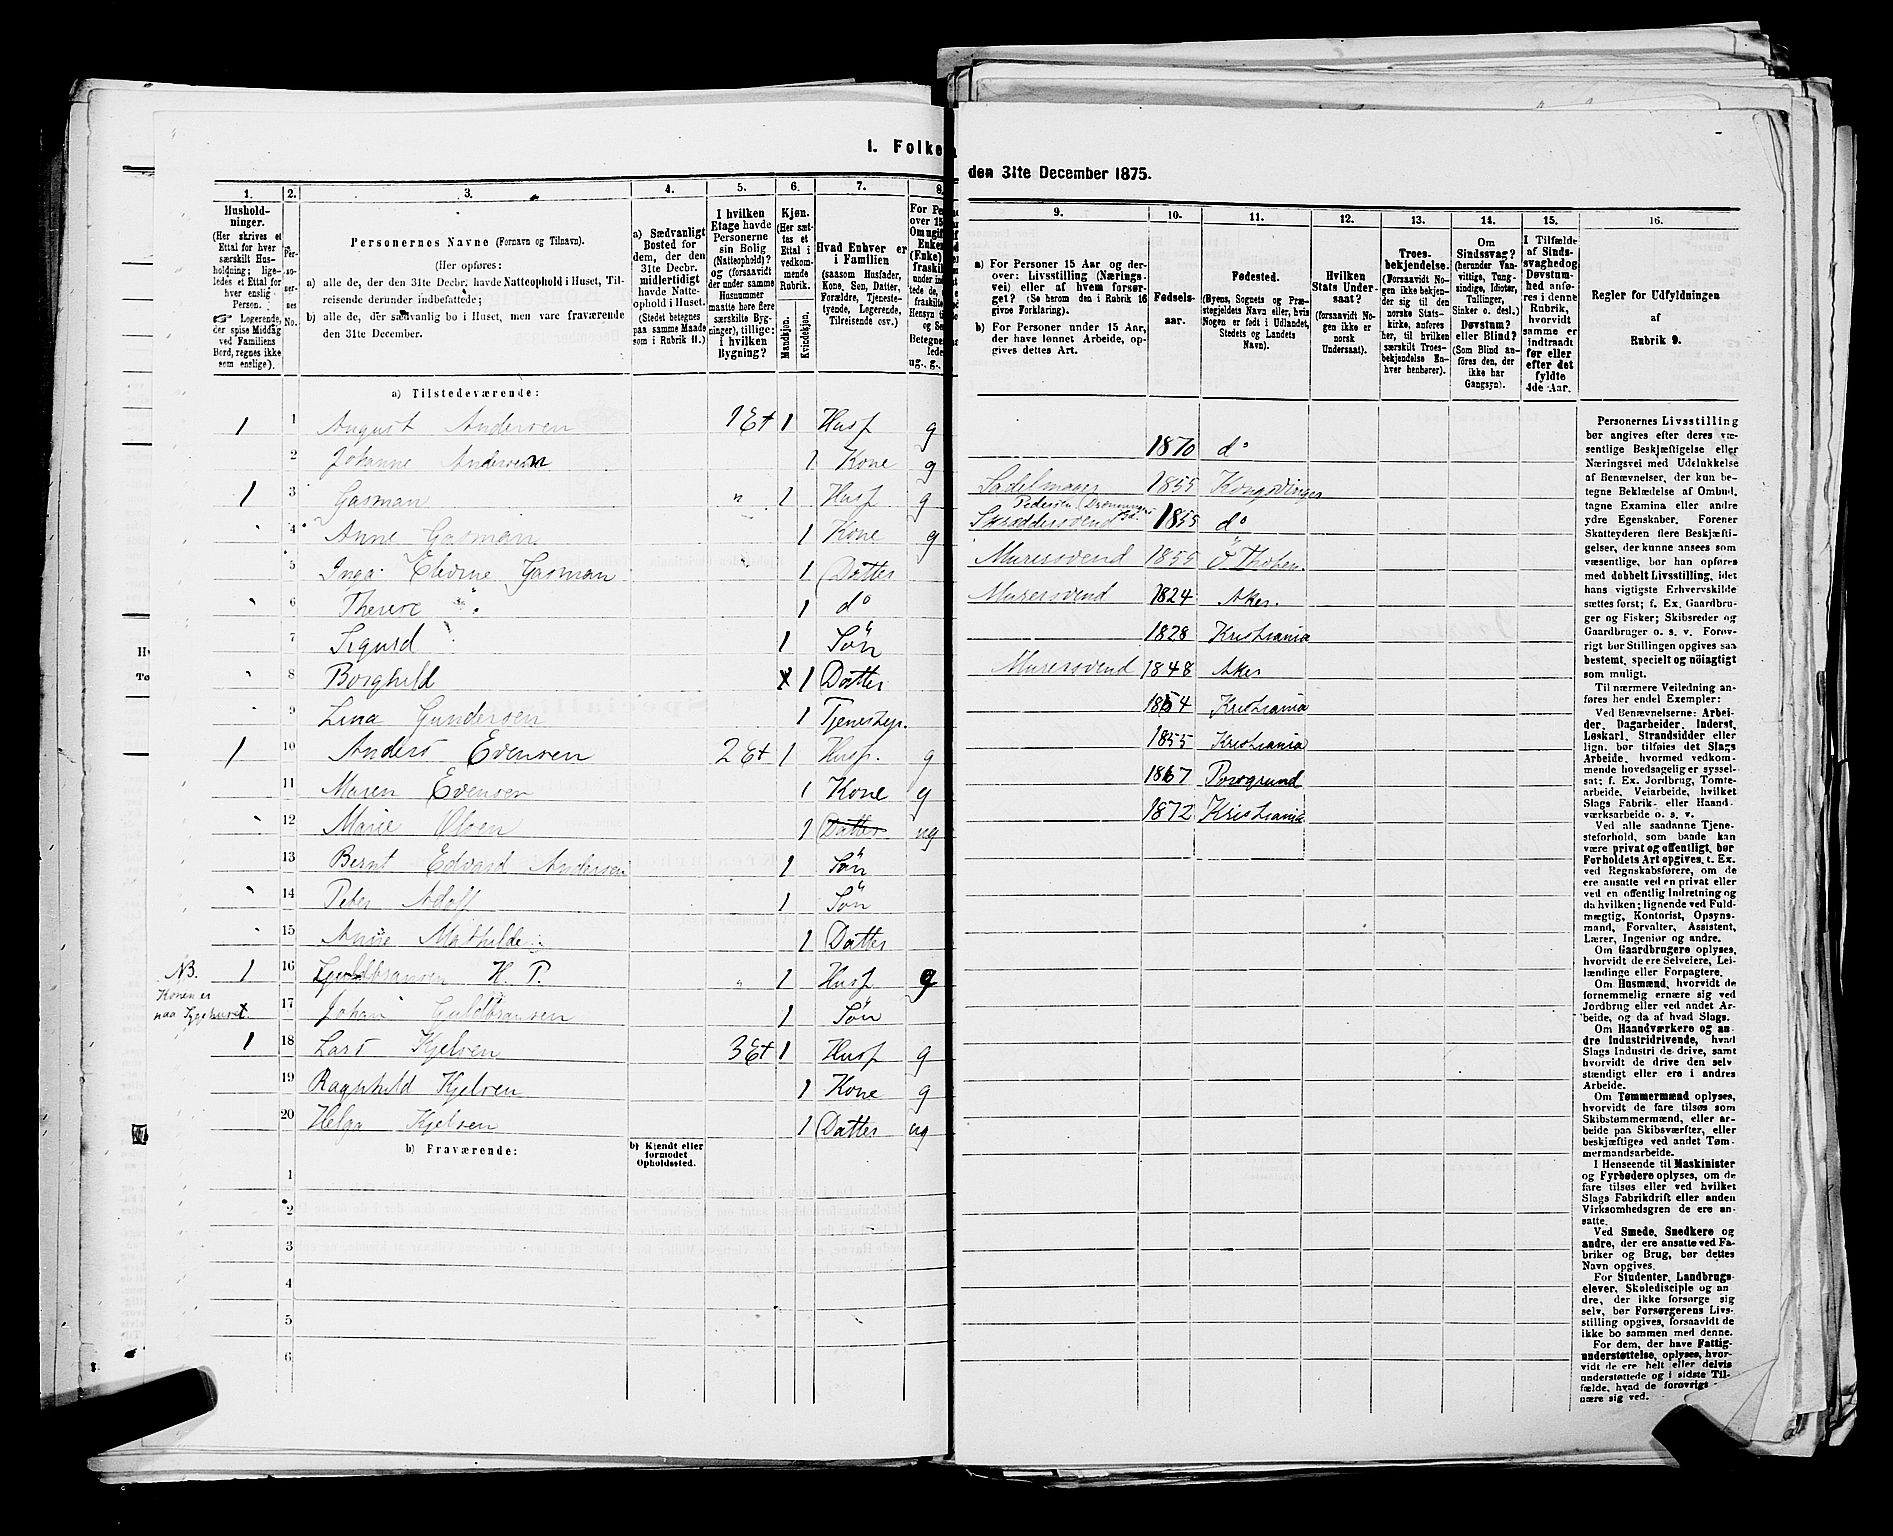 I. Folke
1.
2.
3.
4.
5.
6.
7.
8.
Hushold-
ninger.
(Her skrives et
Ettal for hver
særskilt Hus-
holdning; lige-
ledes et Ettal for
hver enslig
Person.
Logerende,
der spise Middag
ved Familiens
Bord, regnes ikke
som enslige).
Per-
so-
ner-
nes
No.
Personernes Navne (Fornavn og Tilnavn).
(Her opføres:
a) alle de, der den 31te Decbr. havde Natteophold i Huset, Til-
reisende derunder indbefattede;
b) alle de, der sædvanlig bo i Huset, men vare fraværende
den 31te December.
a) Sædvanligt
Bosted for
dem, der den
31te Decbr.
midlertidigt
havde Natte-
ophold i Huset.
(Stedet betegnes
paa samme Maade
som i Rubrik 11.)
I hvilken
Etage havde
Personerne
sin Bolig
(Natteophold)?
og (forsaavidt
der under samme
Husnummer
maatte høre flere
særskilte Byg-
ninger), tillige:
i hvilken
Bygning?
Kjøn.
(Her sæt-
tes et
Ettal i
vedkom-
mende
Rubrik.
Mandkjøn.
Kvindekjøn.
Hvad Enhver er
i Familien
(saasom Husfader,
Kone, Søn, Datter,
Forældre, Tjeneste-
tyende, Logerende,
Tilreisende osv.)
For Pe
over 15
Om ugif
Enker
(Enke)
fraskil
under in
tede de,
fraskilte
Hensyn ti
og Se
Betegne
lede
ug., g.,
a) Tilstedeværende:
1 1 August Andersen 1 Et 1 Husf g
2 Johanne Andersen 1 Kone g
1 3 Gasman " 1 Husf g
4 Anne Gasman 1 Kone g
5 Inga Elevine Gasman 1 Datter
6 Therese " 1 do
7 Sigurd 1 Søn
8 Borghild 1 Datter
9 Lina Gundersen 1 Tjenestep.
1 10 Anders Evensen 2 Et 1 Husf. g
11 Maren Evensen 1 Kone g
12 Marie Olsen 1 Datter ug
13 Bernt Edvard Andersen 1 Søn
14 Peter Adolf 1 Søn
15 Anne Mathilde 1 Datter
NB. 1 16 Guldbransen H. P. " 1 Husf g
Konen er
paa Sygehuset
17 Johan Guldbransen 1 Søn
1 18 Lars Kjelsen 3 Et 1 Husf g
19 Ragnhild Kjelsen 1 Kone g
20 Helga Kjelsen 1 Datter ug
b) Fraværende:
b) Kjendt eller
formodet
Opholdssted.
1
2
3
4
5
6
den 31te December 1875.
9.
10.
11.
12.
13.
14.
15.
16.
a) For Personer 15 Aar og der-
over: Livsstilling (Nærings-
vei) eller af hvem forsør-
get? (Se herom den i Rubrik 16
givne Forklaring).
b) For Personer under 15 Aar,
der have lønnet Arbeide, op-
gives dettes Art.
Fødsels-
aar.
Fødested.
(Byens, Sognets og Præ-
stegjeldets Navn eller, hvis
Nogen er født i Udlandet,
Stedets og Landets
Navn).
Hvilken
Stats Under-
saat?
(forsaavidt No-
gen ikke er
norsk
Undersaat).
Troes-
bekjendelse.
(Forsaavidt Nogen
ikke bekjen-
der sig til den
norske Stats-
kirke, anføres
her, til hvilken
særskilt Troes-
bekjendelse En-
hver henhører).
Om
Sindssvag?
(herunder Van-
vittige, Tung-
sindige, Idioter,
Tullinger,
Sinker o. desl.)
Døvstum?
eller Blind?
(Som Blind an-
føres den, der
ikke har
Gangsyn).
I Tilfælde
af Sinds-
svaghed og
Døvstum-
hed anfø-
res i denne
Rubrik,
hvorvidt
samme er
indtraadt
før eller
efter det
fyldte
4de Aar.
Regler for Udfyldningen
af
Rubrik 9.
1870 do
Sadelmager 1855 Kongsvinger
Pedersen (Dronningens
Skræddersvend 1855 do
Murersvend 1855 Ø Thoten.
Murersvend 1824 Aker.
1828 Kristiania
Murersvend 1848 Aker
1854 Kristiania
1855 Kristiania
1867 Porsgrund
1872 Kristiania
Personernes Livsstilling
bør angives efter deres væ-
sentlige Beskjæftigelse eller
Næringsvei med Udelukkelse
af Benævnelser, der kun be-
tegne Beklædelse af Ombud,
tagne Examina eller andre
ydre Egenskaber. Forener
Skatteyderen flere Beskjæfti-
gelser, der kunne ansees som
væsentlige, bør han opføres
med dobbelt Livsstilling, idet
hans vigtigste Erhvervskilde
sættes først; f. Ex. Gaardbru-
ger og Fisker; Skibsreder og
Gaardbruger o. s. v. Forøv-
rigt bør Stillingen opgives saa
bestemt, specielt og nøiagtig
som muligt.
Til nærmere Veiledning an-
føres her endel Exempler:
Ved Benævnelserne: Arbei-
der, Dagarbeider, Inderst,
Løskarl, Strandsidder eller
lign. bør tilføies det Slags
Arbeide, hvormed vedkom-
mende hovedsagelig er syssel-
sat; f. Ex. Jordbrug, Tomte-
arbeide, Veiarbeide, hvilket
Slags Fabrik- eller Haand-
værksarbeide o. s. v.
Ved alle saadanne Tjene-
steforhold, som baade kan
være privat og offentligt, bør
Forholdets Art opgives, t. Ex.
ved Regnskabsførere, om de
ere ansatte ved en privat eller
ved en offentlig Indretning og
da hvilken; lignende ved Fuld-
mægtig, Kontorist, Opsyns-
mand, Forvalter, Assistent,
Lærer, Ingeniør og andre.
Om Gaardbrugere oplyses,
hvorvidt de ere Selveiere, Lei-
lændinge eller Forpagtere.
Om Husmænd, hvorvidt de
fornemmelig ernære sig ved
Jordbrug eller ved andet Ar-
beide, og da af hvad Slags.
Om Haandværkere og an-
dre Industridrivende, hvad
Slags Industri de drive, samt
hvorvidt de drive den selv-
stændigt eller ere i andres
Arbeide.
Om Tømmermænd oplyses,
hvorvidt de fare tilsøs som
Skibstømmermænd, eller ar-
beide paa Skibsværfter, eller
beskjæftiges ved andet Tøm-
mermandsarbeide.
I Henseende til Maskinister
og Fyrbødere oplyses, om de
fare tilsøs eller ved hvilket
Slags Fabrikdrift eller anden
Virksomhedsgren de ere an-
satte.
Ved Smede, Snedkere og
andre, der ere ansatte ved Fa-
briker og Brug, bør dettes
Navn opgives.
For Studenter, Landbrugs-
elever, Skoledisciple og an-
dre, der ikke forsørge sig
selv, bør Forsørgerens Livs-
stilling opgives, forsaavidt de
ikke bo sammen med denne.
For dem, der have Fattig-
understøttelse, oplyses, hvor-
vidt de ere helt eller delvis
understøttede og i sidste Til-
fælde, hvad de forøvrigt
nære sig ved.